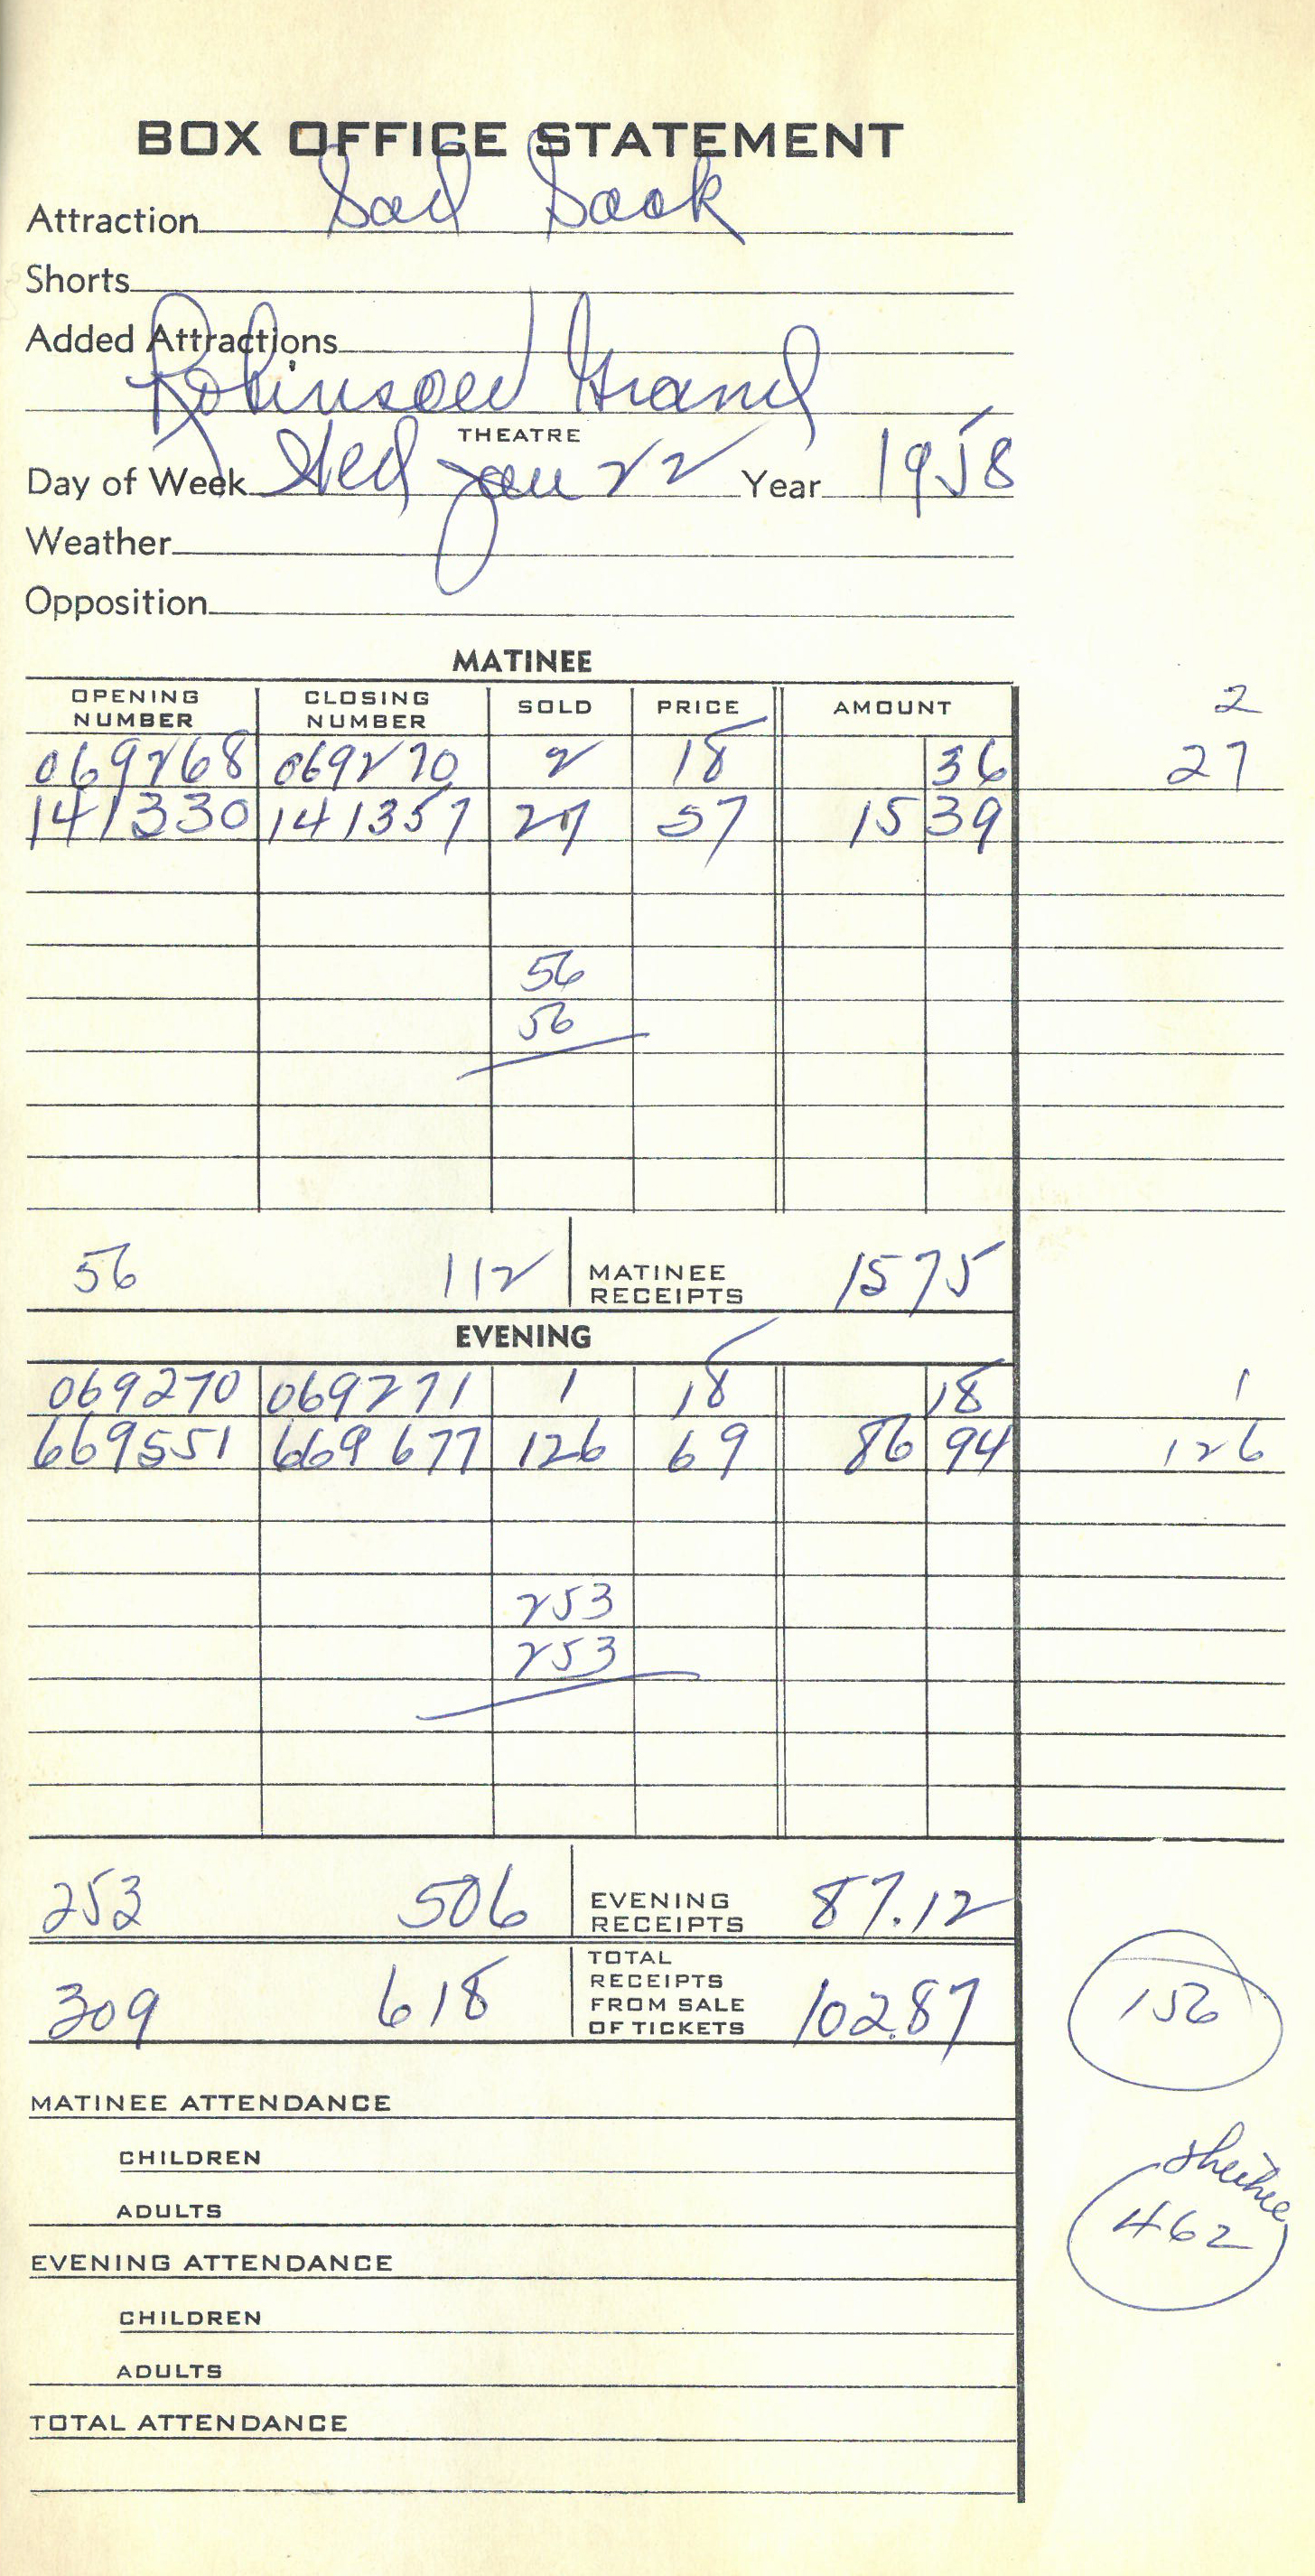 BOX OFFICE STATEMENT
Attraction Sad Sack
Shorts
Added Attractions
Robinson Grand
THEATRE
Day of Week Wed Jan 22 Year 1958
Weather
Opposition
MATINEE
OPENING NUMBER CLOSING NUMBER SOLD PRICE AMOUNT 2
069268 069270 2 18 36 27
141330 141357 27 57 15 39
56
56
56 112 MATINEE RECEIPTS 1575
EVENING
069270 069271 1 18 18 1
669551 669677 126 69 86 94 126
253
253
253 506 EVENING RECEIPTS 87.12
309 618 TOTAL RECEIPTS FROM SALE OF TICKETS 102.87 156
MATINEE ATTENDANCE
CHILDREN
ADULTS 462
EVENING ATTENDANCE
CHILDREN
ADULTS
TOTAL ATTENDANCE